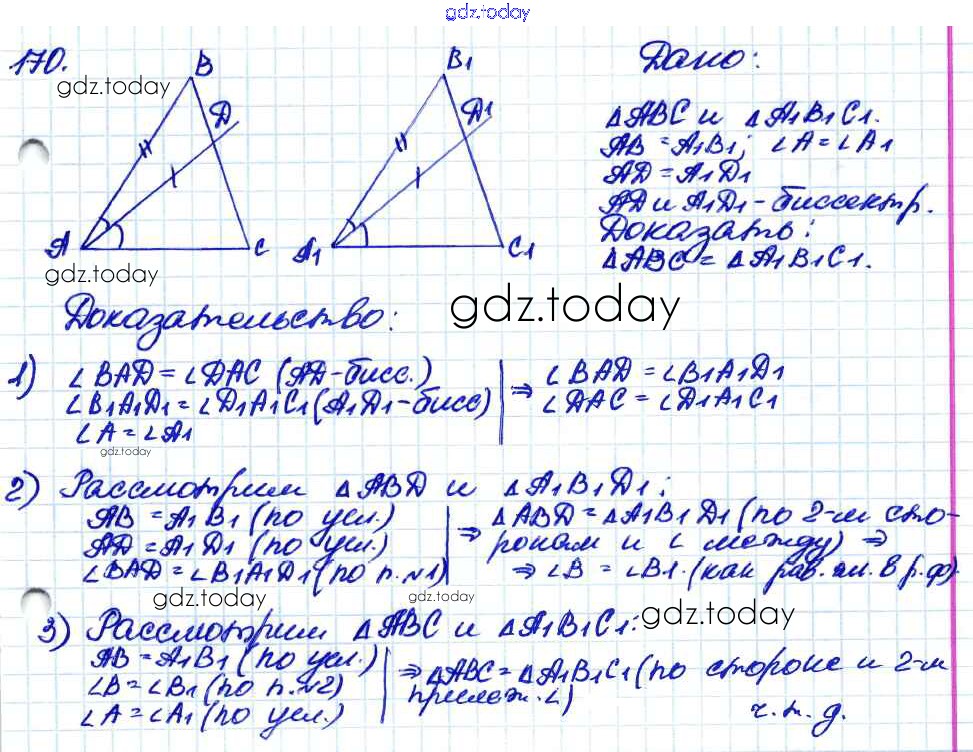 gdz.today
170.
gdz.today
B
Д
A
C
gdz.today
B1
Д1
A1
C1
Дано:
△ABC и △A1B1C1.
AB = A1B1; ∠A = ∠A1
AД = A1Д1
AД и A1Д1 - биссектр.
Доказать:
△ABC = △A1B1C1.
Доказательство:
gdz.today
1) ∠BAД = ∠ДAC (AД - бисс.)
∠B1A1Д1 = ∠Д1A1C1 (A1Д1 - бисс)
∠A = ∠A1
⇒ ∠BAД = ∠B1A1Д1
∠ДAC = ∠Д1A1C1
gdz.today
2) Рассмотрим △ABД и △A1B1Д1:
AB = A1B1 (по усл.)
AД = A1Д1 (по усл.)
∠BAД = ∠B1A1Д1 (по п.№1)
⇒ △ABД = △A1B1Д1 (по 2-м сто-
ронам и ∠ между) ⇒
⇒ ∠B = ∠B1. (как рав. эл. в р.ф)
gdz.today
gdz.today
gdz.today
3) Рассмотрим △ABC и △A1B1C1:
AB = A1B1 (по усл.)
∠B = ∠B1 (по п.№2)
∠A = ∠A1 (по усл.)
⇒ △ABC = △A1B1C1 (по стороне и 2-м
прилеж. ∠)
ч.т.д.